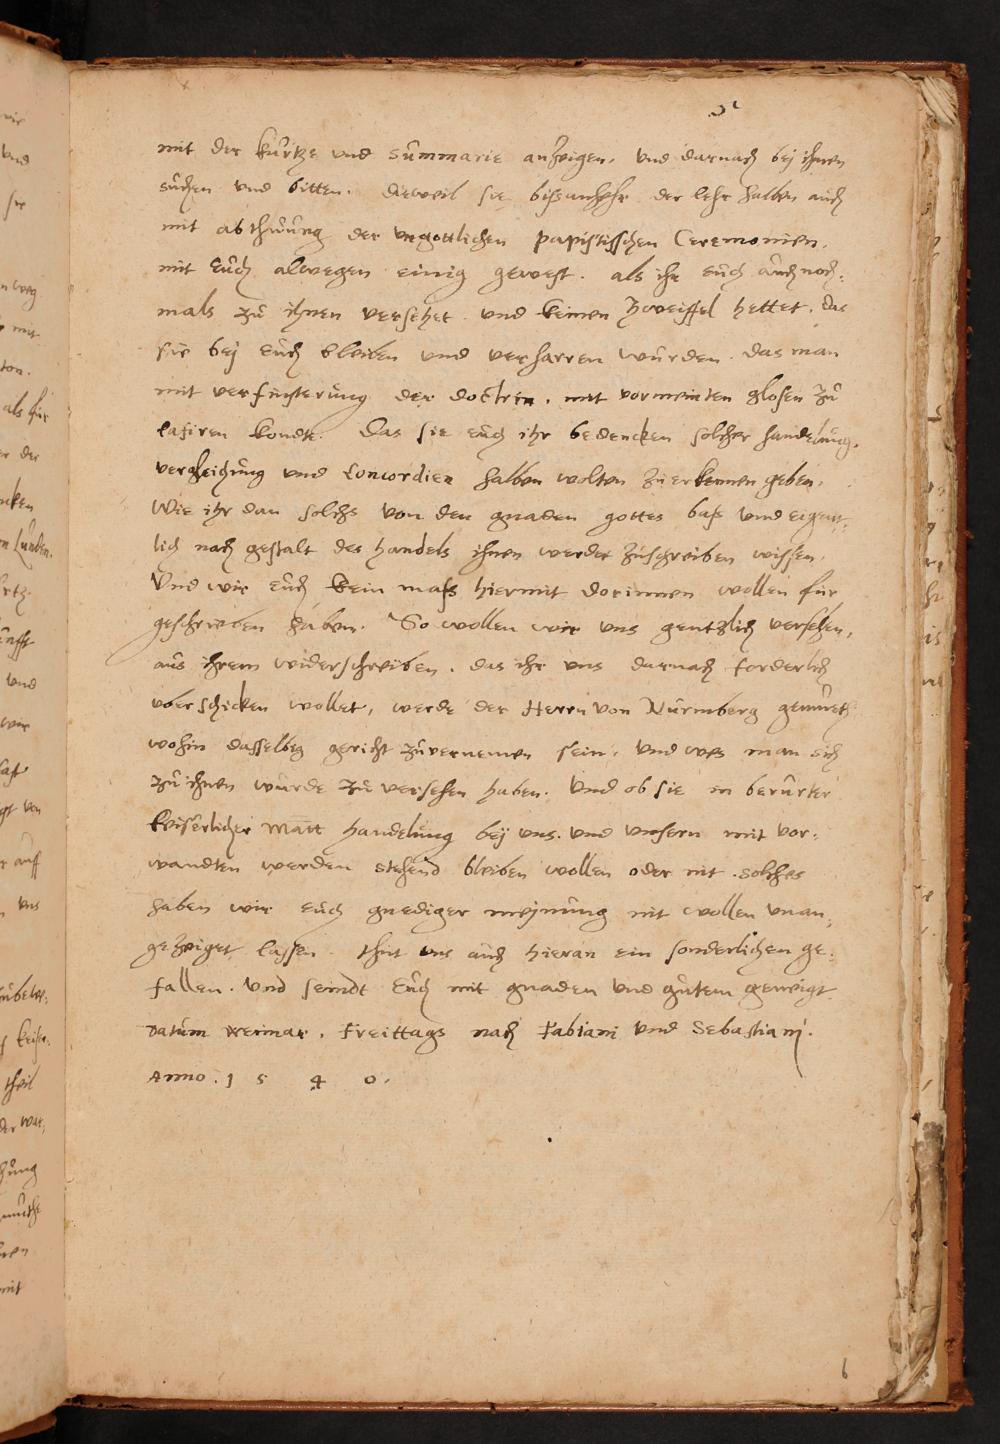 5
mit der kurtze vnd summarie anzeigen, vnd darnach bej ihnen
suchen vnd bitten. dieweil sie bissanhehr der lehr halben auch
mit abthuung der vngottlichen papistisschen Ceremonien,
mit Euch alwegen einig gewest. als ihr Euch auch noch:
mals zu ihnen versehet. vnd keinen Zweiffel hettet. das
sie bej Euch bleiben vnd verharren wurden. das man
mit verfinsterung der doctrin. mit vormeinten glosen zu
lasiren kondte. Das sie euch ihr bedencken solcher handelung,
vergleichung vnd Concordien halben wolten zu erkennen geben,
Wie ihr dan solchs von den gnaden gottes bass vnd eigent:
lich nach gestalt des handels ihnen werdet zuschreiben wissen,
Vnd wir euch kein mass hiermit dorinnen wollen fur
geschrieben haben. So wollen wir vns gentzlich versehen,
aus ihrem widerschreiben. das ihr vns darnach forderlich
vberschicken wollet, werde der Herrn von Nurmberg gemueth
wohin dasselbig gericht zuvernemen sein, vnd wes man sich
zu ihnen wurde zu versehen haben. Vnd ob sie in berurter
keiserlicher Matt handelung bej vns. vnd vnsern mit vor:
wandten werden stehend bleiben wollen oder nit. solches
haben wir euch gnediger meinung nit wollen vnan:
gezeiget lassen. thut vns auch hieran ein sonderlichen ge:
fallen. Vnd seindt Euch mit gnaden vnd gutem geneigt
Datum Weimar. Freittags nach Fabiani vnd Sebastiani.
Anno. 1 5 4 0.
6